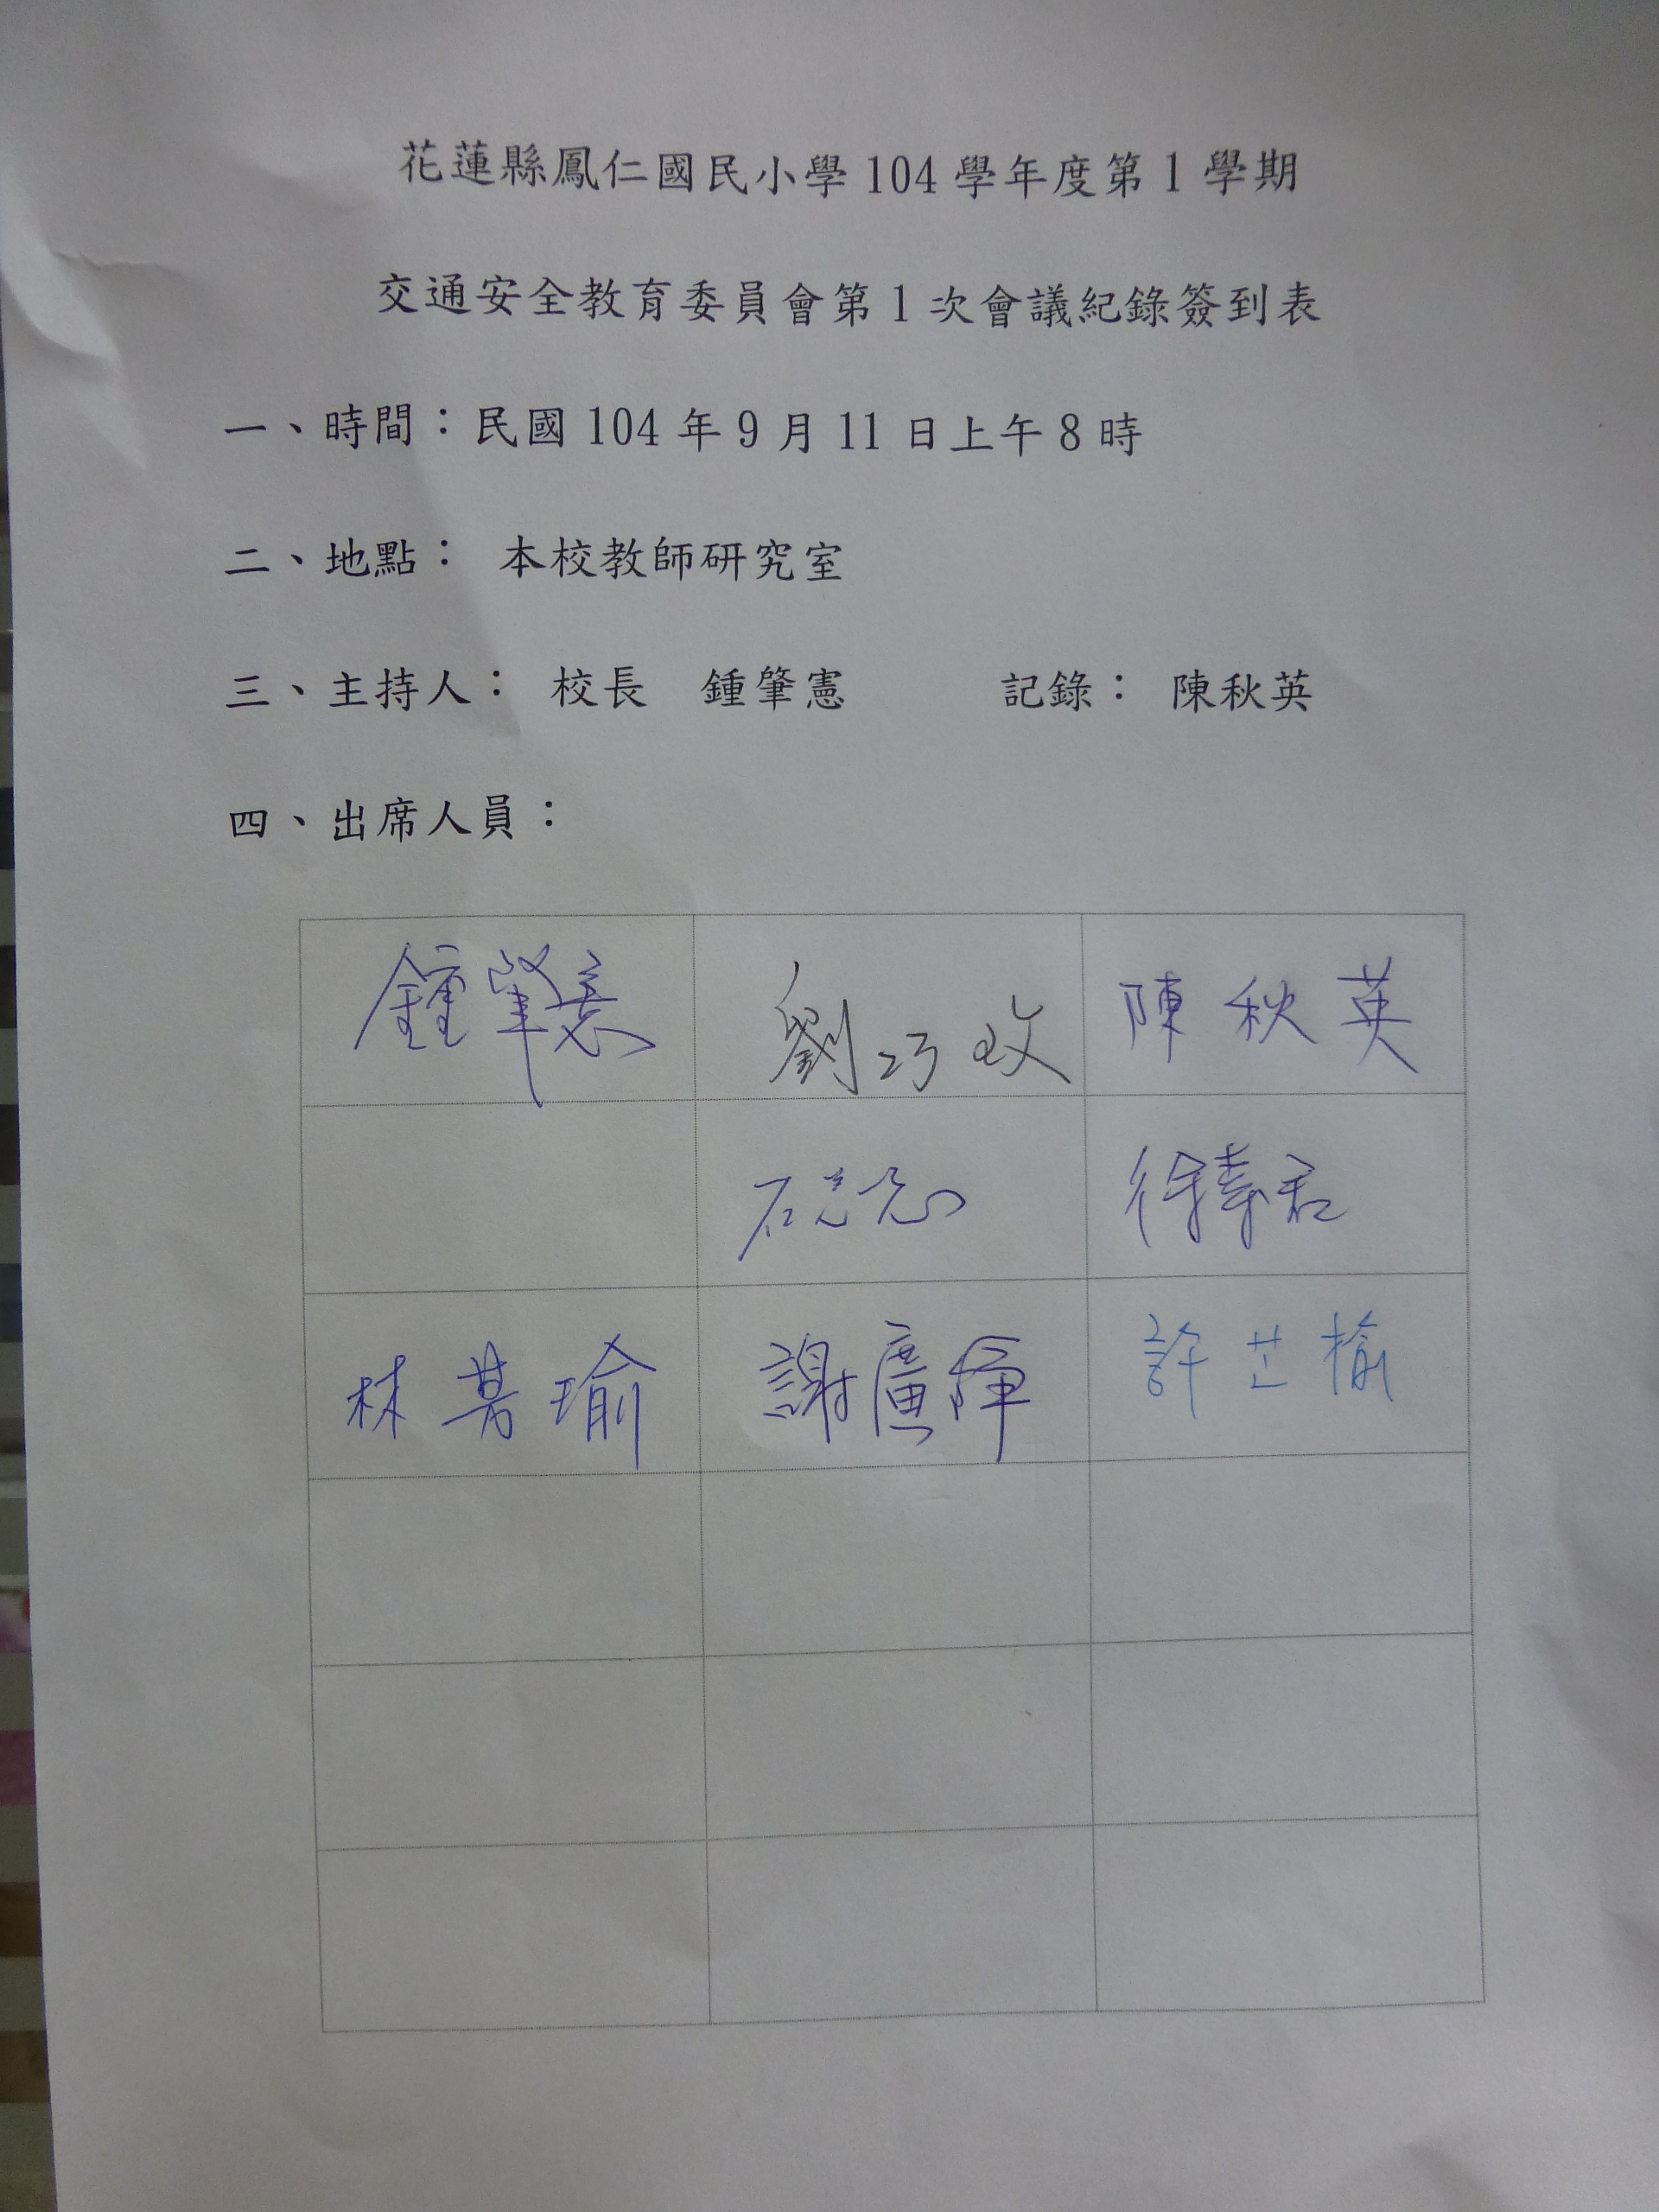 花蓮縣鳳仁國民小學 104 學年度第 1 學期
交通安全教育委員會第 1 次會議紀錄簽到表
一、時間：民國 104 年 9 月 11 日上午 8 時
二、地點： 本校教師研究室
三、主持人： 校長 鍾肇憲 記錄： 陳秋英
四、出席人員：
鍾肇憲 劉巧玫 陳秋英
林芳瑜 謝廣暉 許芷榆